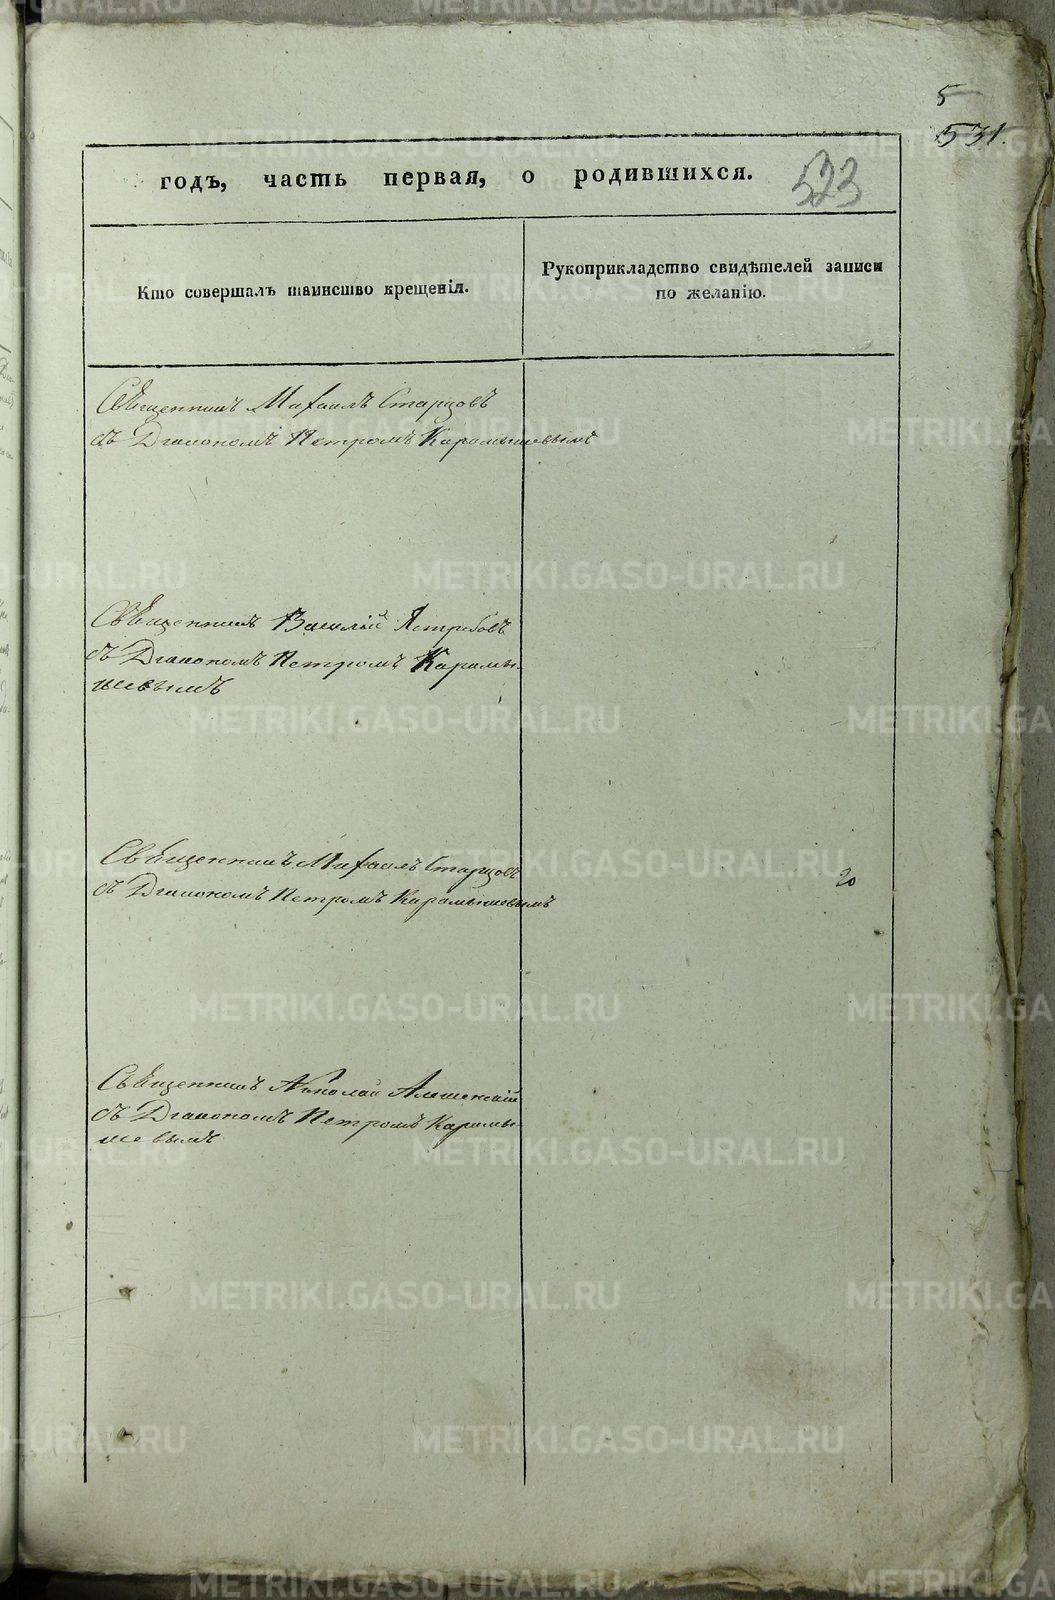 5
531.
годъ, часть первая, о родившихся.
523
Кто совершалъ таинство крещенія.
Рукоприкладство свидѣтелей записи
по желанію.
Священникъ Михаилъ Старцовъ
съ Діакономъ Петромъ Карамышевымъ
Священникъ Василій Ястребовъ
съ Діакономъ Петромъ Карамы-
шевымъ
Священникъ Михаилъ Старцовъ
съ Діакономъ Петромъ Карамышевымъ
20
Священникъ Николай
съ Діакономъ Петромъ Карамы-
шевымъ
METRIKI.GASO-URAL.RU